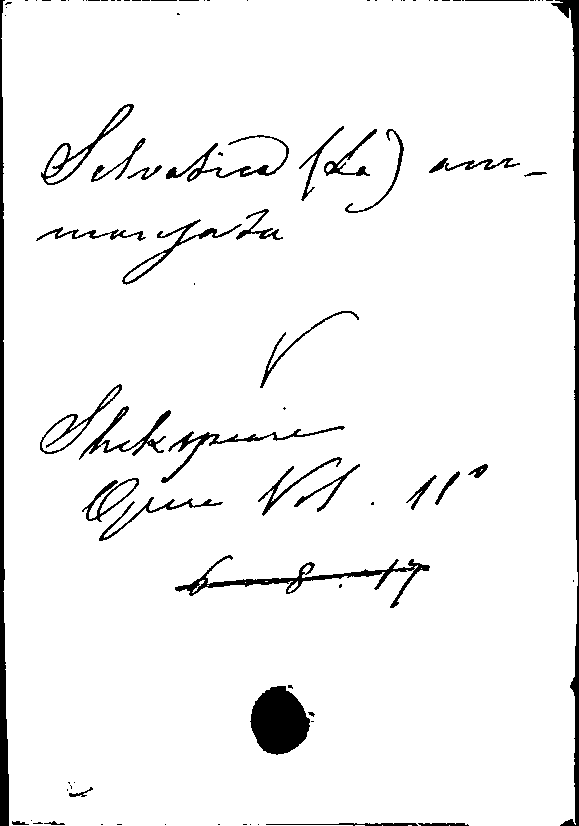 Selvatica (La) am-
mansata
V
Shekspeare
Opere Vol. 11°
6 - 8 - 17